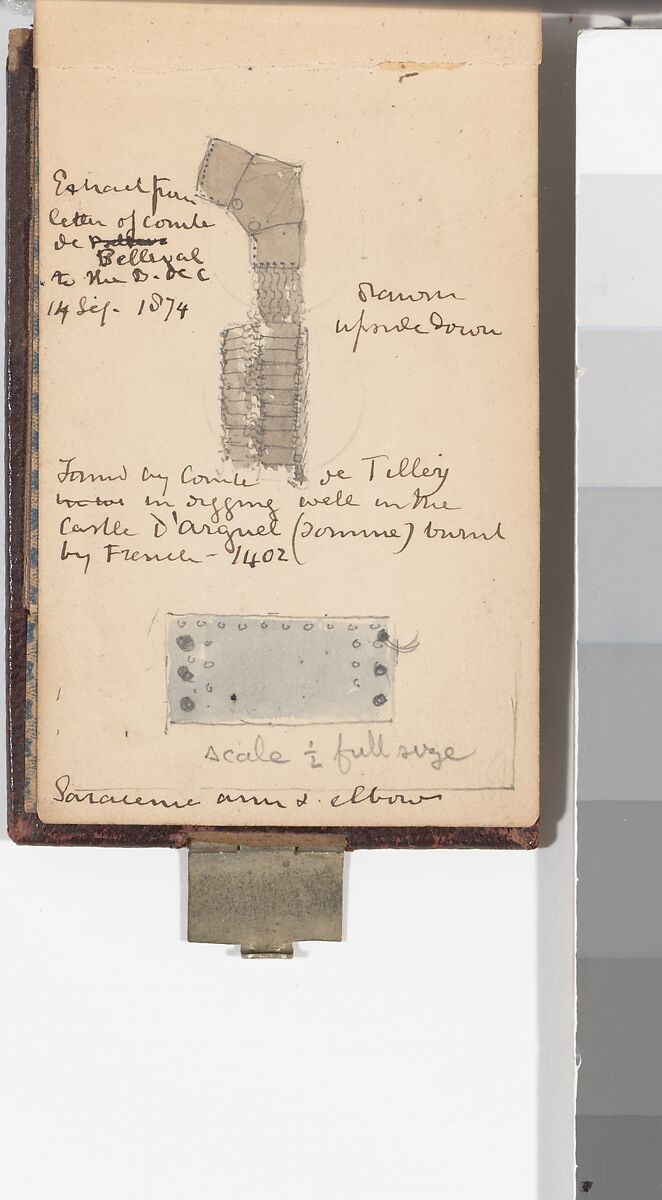 Extract from
letter of Comte
de
Belleval
to the B. de C
14 Sep. 1874
drawn
upside down
Found by Comte de Tilley
in digging well in the
Castle D'Arguel (Somme) burnt
by French - 1402
scale ½ full size
Saracenic arm & elbow